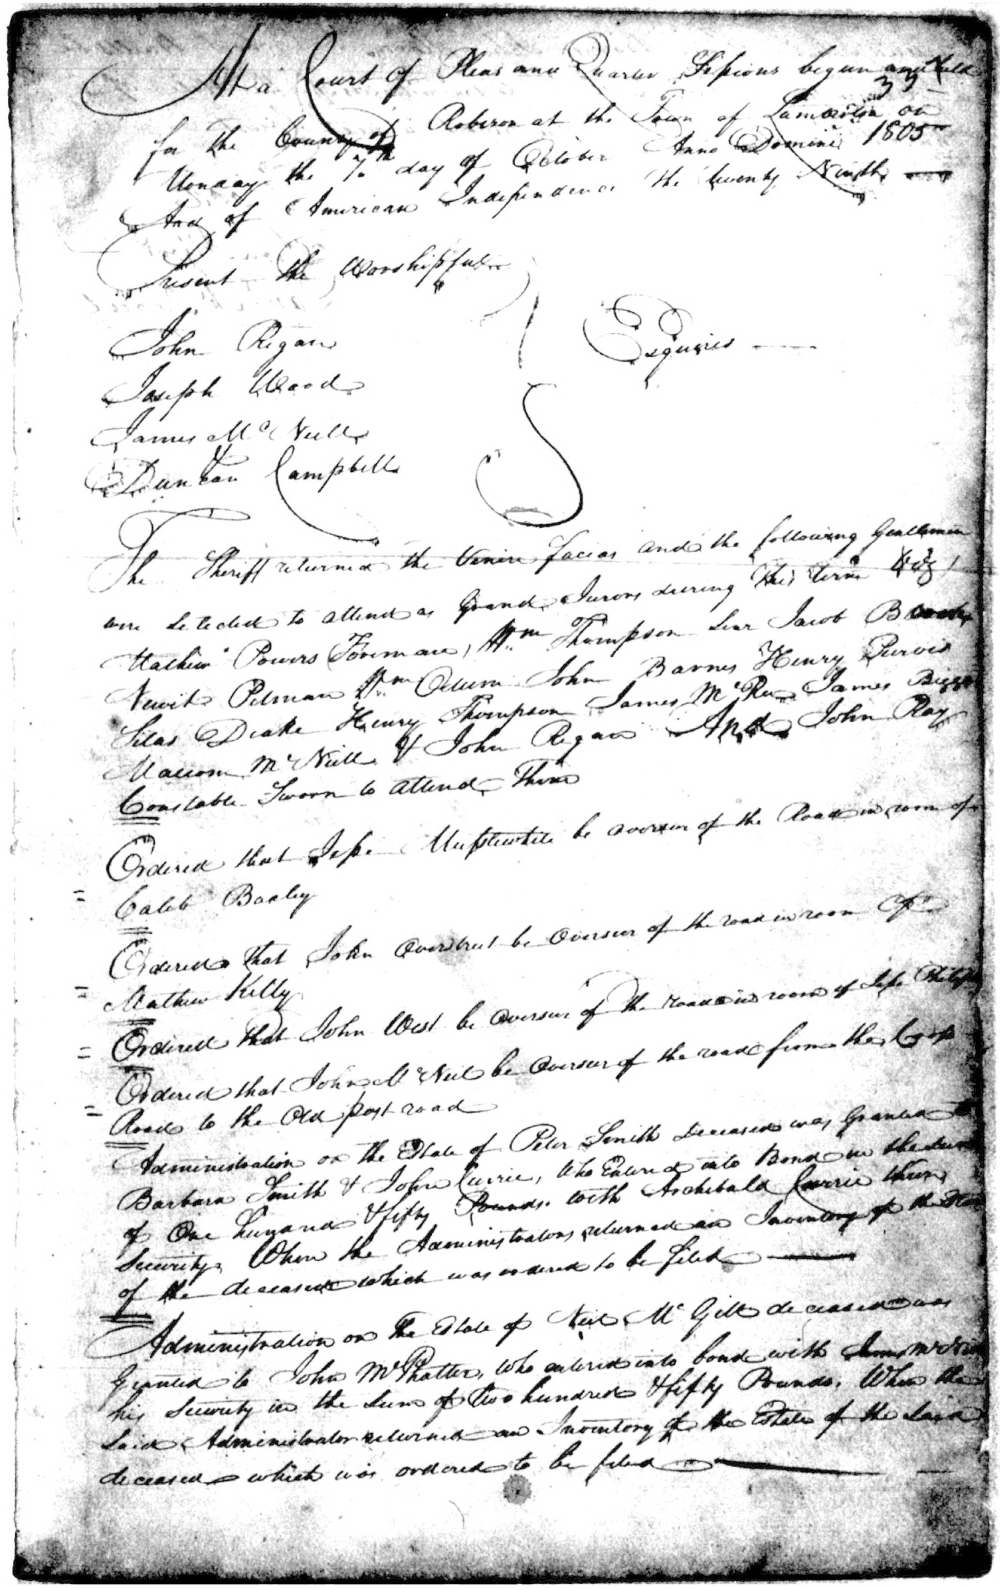 At a Court of Pleas and Quarter Sessions begun and held
33
for the County of Robeson at the Town of Lumberton on
Monday the 7th day of October Anno Domini 1805
And of American Independence the twenty Ninth
Present the Worshipful
Esquires
John Regan
Joseph Wood
James McNeill
Duncan Campbell
The Sheriff returned the Venire facias and the following Gentlemen
were Selected to attend as Grand Jurors during this term Viz
Mathew Powers Foreman, Wm Thompson Senr Jacob
Newit Pitman Wm Odum John Barnes Henry Purvis
Silas Drake Henry Thompson James McRae James
Malcom McNeill & John Regan And John Ray
Constable Sworn to attend Them
Ordered that Jesse Musslewhite be overseer of the Road in room of
Caleb Baxley
Ordered that John Overstreet be Overseer of the road in room of
Mathew Kelly
Ordered that John West be Overseer of the road in room of Jesse
Ordered that John McNeil be Overseer of the road from the
Road to the Old post road
Administration on the Estate of Peter Smith Deceased was Granted to
Barbara Smith & John Currie, Who Entered into Bond in the sum
of One hundred & fifty Pounds with Archibald Currie their
Security When the Administrators returned an Inventory of the Estate
of the deceased which was ordered to be filed
Administration on the Estate of Neil McGill deceased was
Granted to John McPhatter, Who entered into bond with James McNeill
his Security in the Sum of two hundred & fifty Pounds, When the
Said Administrator returned an Inventory of the Estate of the Said
deceased which was ordered to be filed